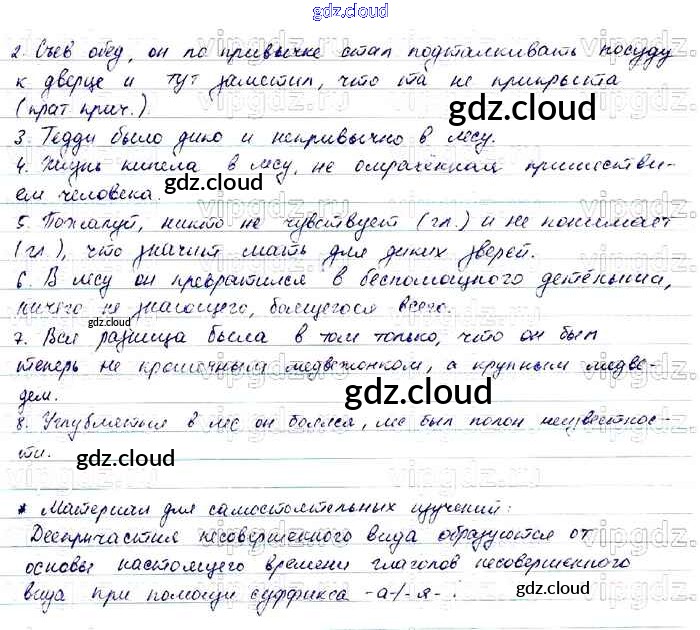 gdz.cloud
2. Съев обед, он по привычке стал подталкивать посуду
к дверце и тут заметил, что та не прикрыта
(крат. прич.).
gdz.cloud
3. Тедди было дико и непривычно в лесу.
4. Жизнь кипела в лесу, не омрачённая пришестви-
ем человека.
gdz.cloud
5. Пожалуй, никто не чувствует (гл.) и не понимает
(гл.), что значит мать для диких зверей.
6. В лесу он превратился в беспомощного детёныша,
ничего не знающего, боящегося всего.
gdz.cloud
7. Вся разница была в том только, что он был
теперь не крошечным медвежонком, а крупным медве-
дем.
gdz.cloud
8. Углубляться в лес он боялся, лес был полон неизвестнос-
ти.
gdz.cloud
* Материал для самостоятельных изучений:
Деепричастия несовершенного вида образуются от
основы настоящего времени глаголов несовершенного
вида при помощи суффикса -а-/-я- .
gdz.cloud